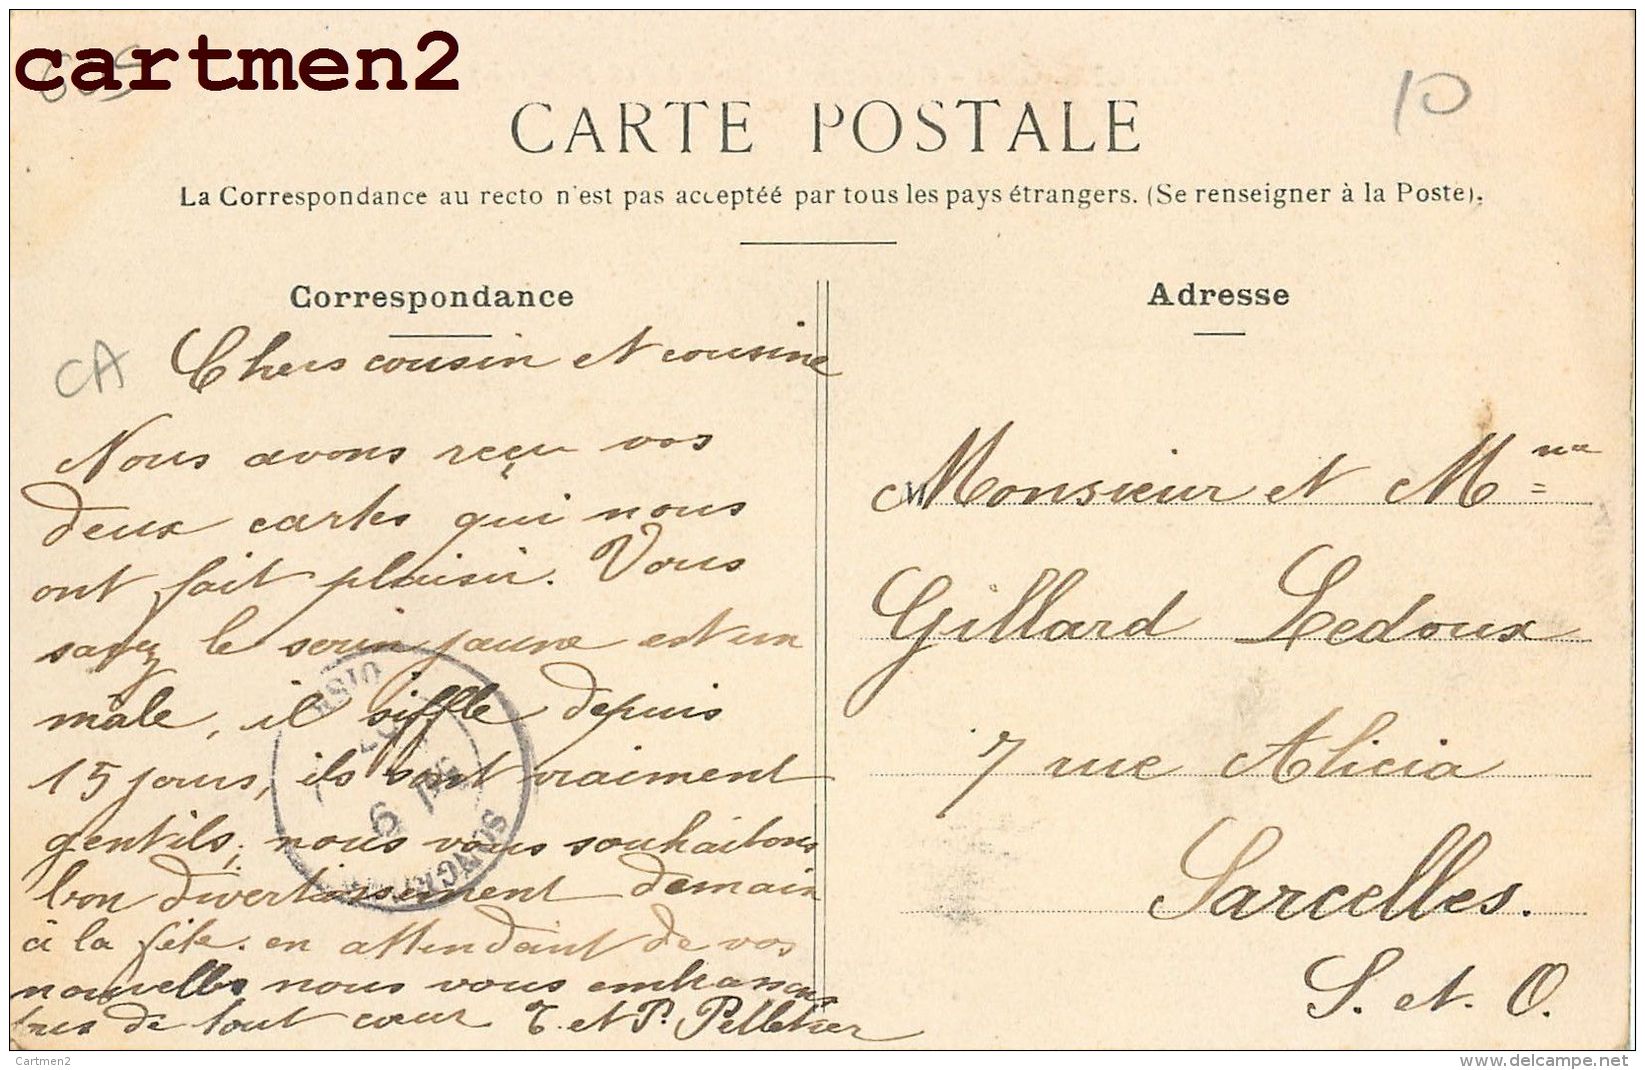 cartmen2
605
10
CARTE POSTALE
La Correspondance au recto n'est pas acceptéé par tous les pays étrangers. (Se renseigner à la Poste).
Correspondance
CA
Chers cousin et cousine
Nous avons reçu vos
deux cartes qui nous
ont fait plaisir. Vous
savez le serin jaune est un
mâle, il siffle depuis
15 jours, ils sont vraiment
gentils, nous vous souhaitons
bon divertissement demain
à la fête. en attendant de vos
nouvelles nous vous embrassons
tres de tout cœur T. et P. Pelletier
OISE
Adresse
Monsieur et Mme
Gillard Ledoux
7 rue Alicia
Sarcelles.
S. et. O.
Cartmen2
www.delcampe.net